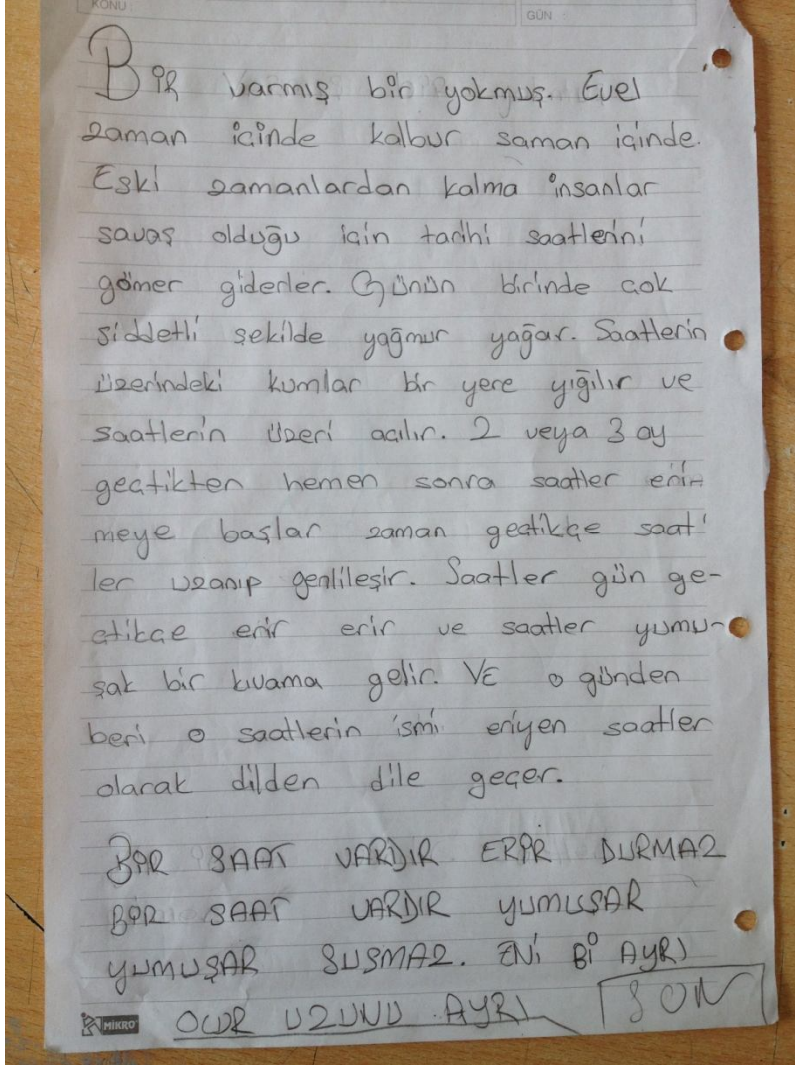 KONU :
GÜN :
Bir varmış bir yokmuş. Evel
zaman içinde kalbur saman içinde.
Eski zamanlardan kalma insanlar
savaş olduğu için tarihi saatlerini
gömer giderler. Günün birinde çok
şiddetli şekilde yağmur yağar. Saatlerin
üzerindeki kumlar bir yere yığılır ve
saatlerin üzeri açılır. 2 veya 3 ay
geçtikten hemen sonra saatler erin
meye başlar zaman geçtikçe saat'
ler uzanıp genlileşir. Saatler gün ge-
çtikçe erir erir ve saatler yumu-
şak bir kıvama gelir. VE o günden
beri o saatlerin ismi eriyen saatler
olarak dilden dile geçer.
BİR SAAT VARDIR ERİR DURMAZ
BİR SAAT VARDIR YUMUŞAR
YUMUŞAR SUSMAZ. ENİ Bİ AYRI
OLUR UZUNU AYRI SON
MİKRO